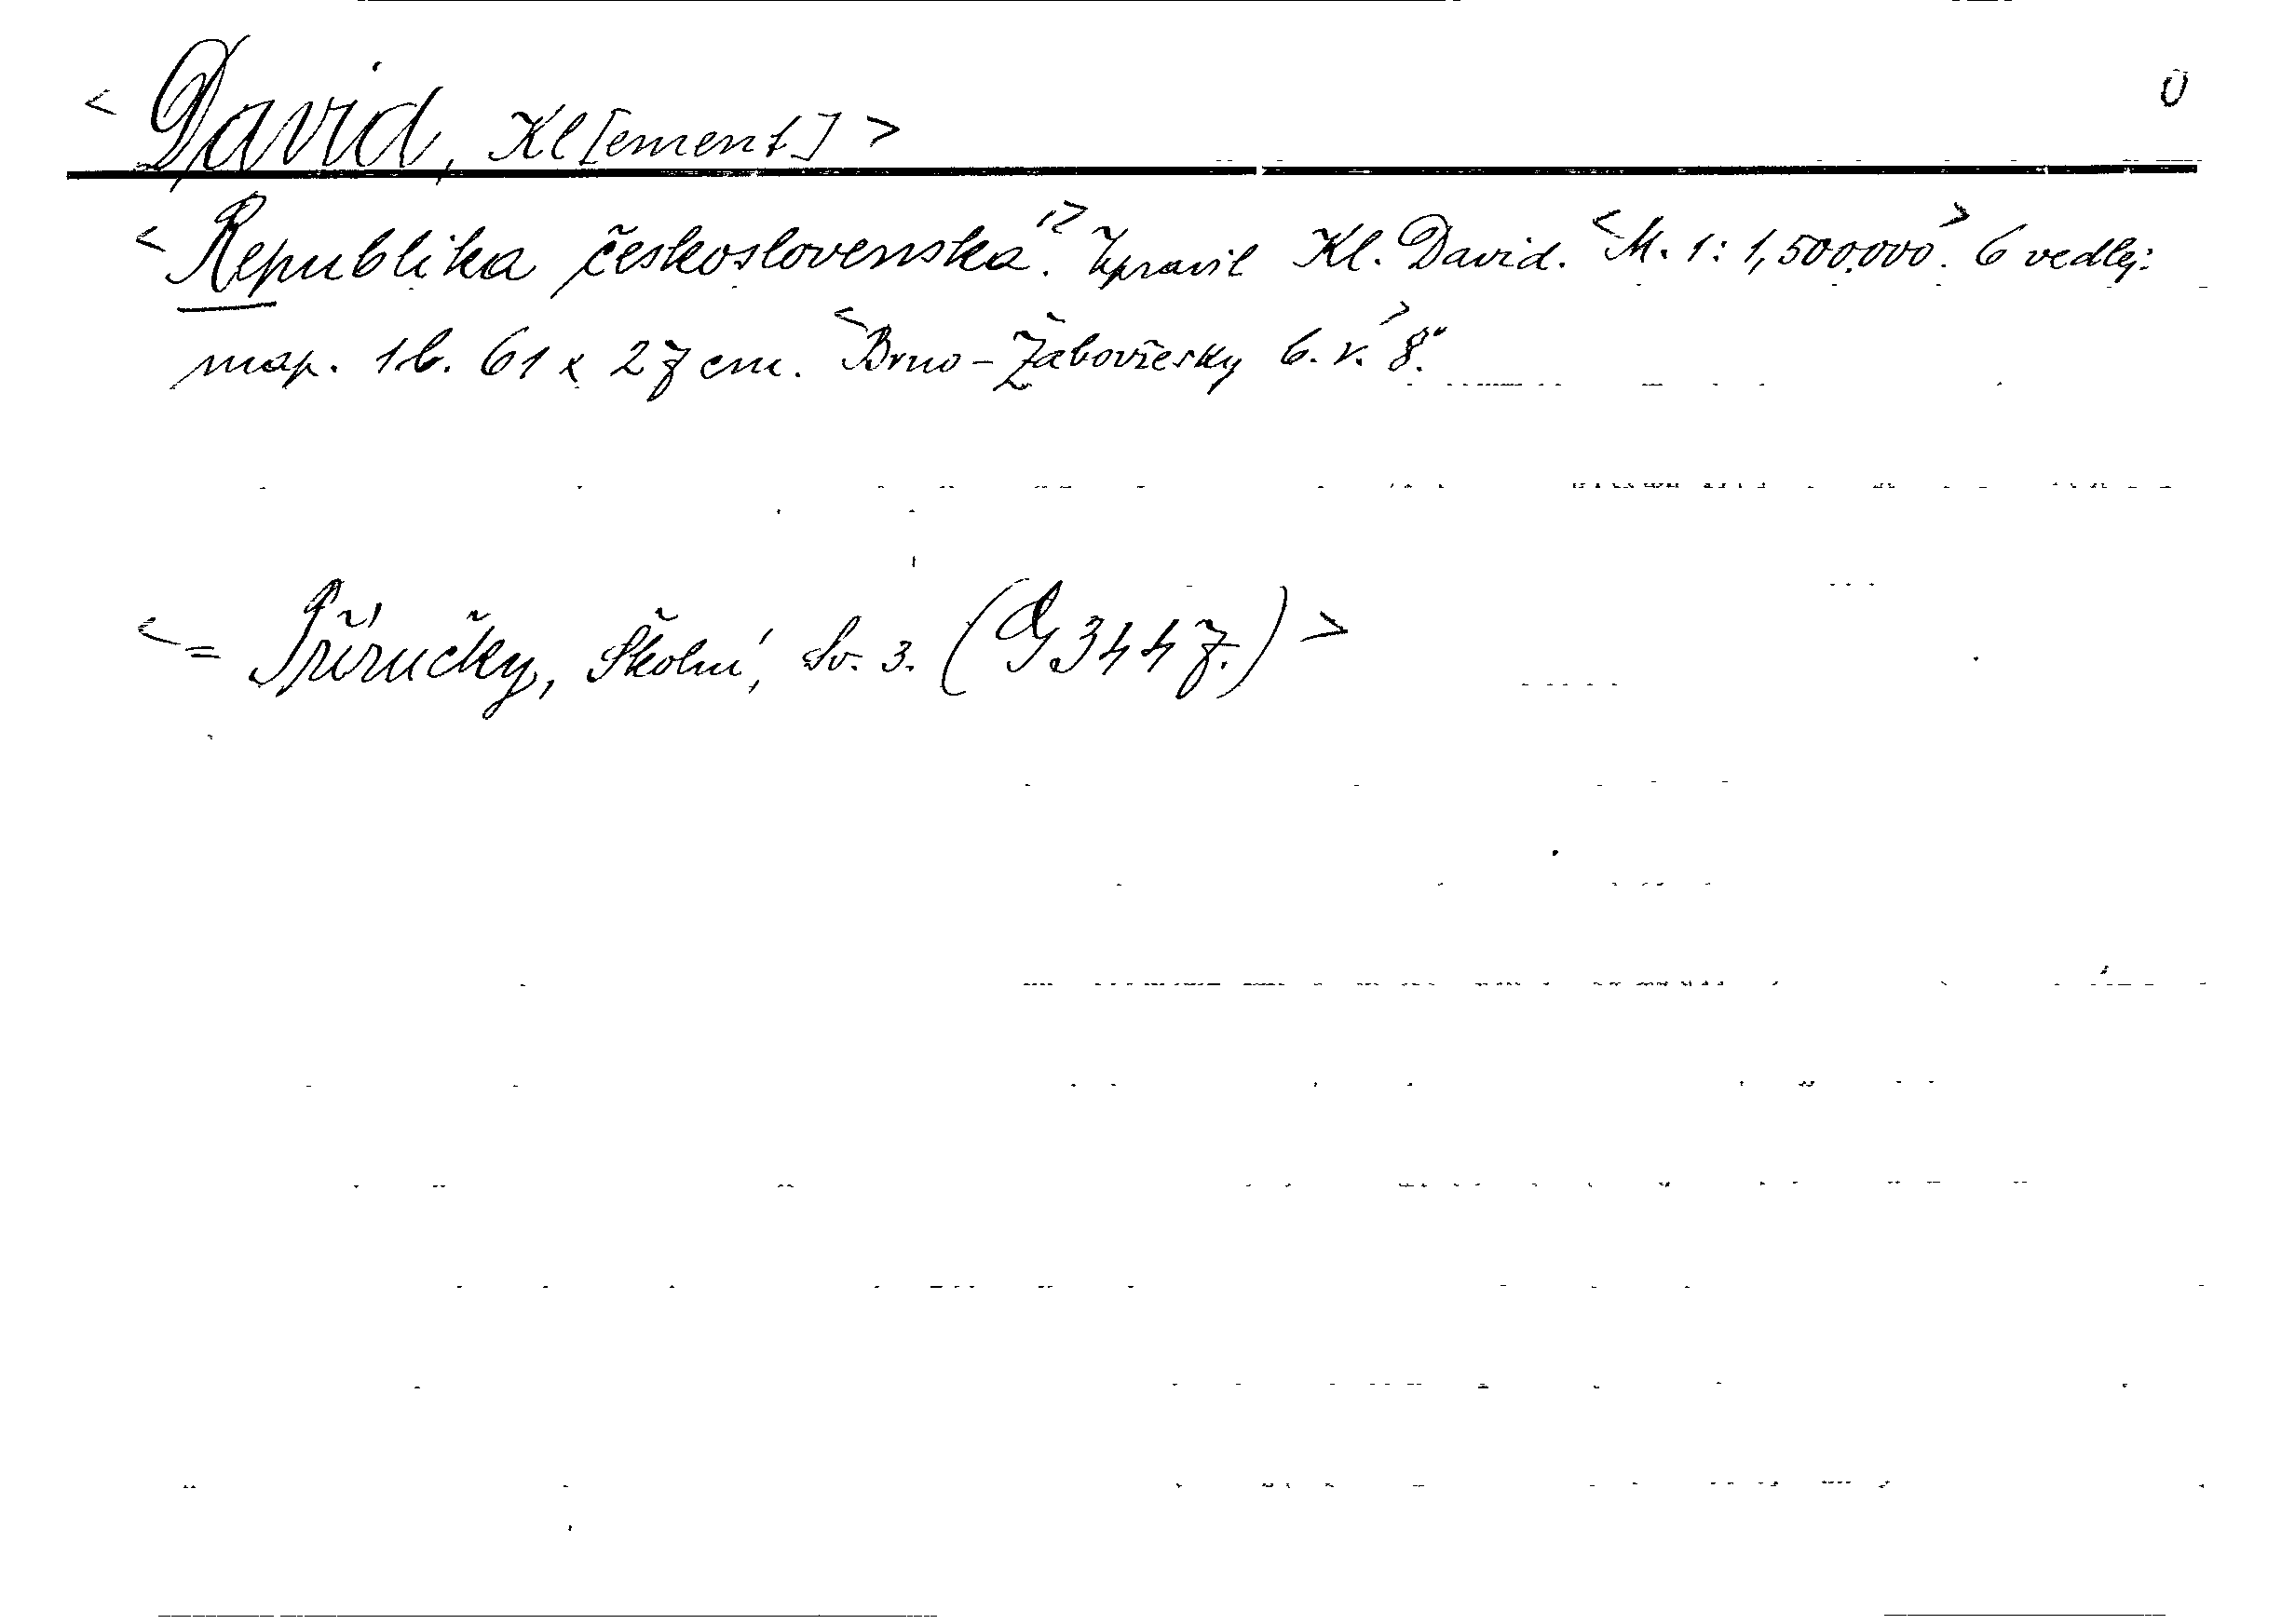 <David, Kl[ement]> 0
<Republika československá.> Upravil Kl. David. <M. 1:1,500.000>. 6 vedlej:
map. 1 b. 61 x 27 cm. <Brno-Žabovřesky b. r.> 8°.
<= Příručky, Školní, Sv. 3. (G 3447.)>